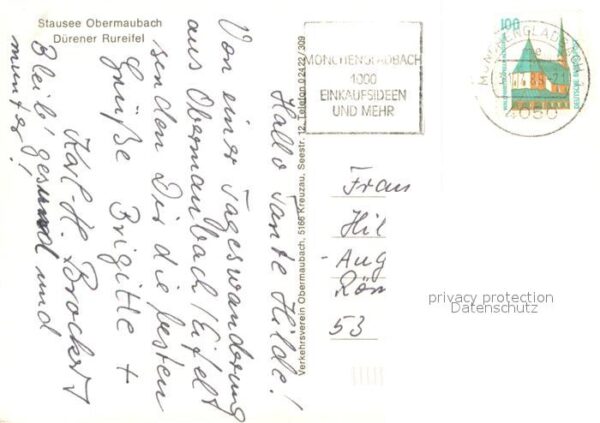 Stausee Obermaubach
Dürener Rureifel
Hallo Tante Hilde!
Von einer Tageswanderung
aus Obermaubach/Eifel
senden Dir die besten
Grüße Brigitte +
Karl-H. Brockert
Bleib' gesund und
munter!
Verkehrsverein Obermaubach, 5166 Kreuzau, Seestr. 12, Telefon 0 24 22 / 309
MÖNCHENGLADBACH
1000
EINKAUFSIDEEN
UND MEHR
MÖNCHENGLADBACH
4050
100
Frau
Hil
-Aug
Röm
53
privacy protection
Datenschutz